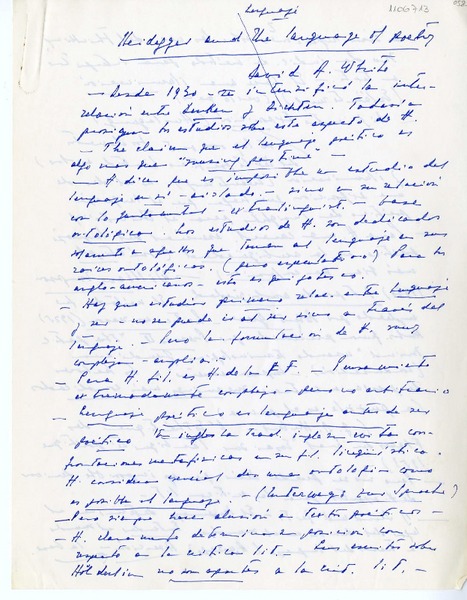 Language
1106713
Heidegger and the language of poetry
David A. White
— Desde 1930 – se intensificó la inter-
relación entre Denken y Dichten. Todavía
prosiguen los estudios sobre este aspecto de H.
– The claim que el lenguaje poético es
algo más que "musing pastime" –
– H dice que es imposible un estudio del
lenguaje en sí – aislado – sino en su relación
con lo fundamental – extralinguist. – base
ontológica. Los estudios de H. son dedicados
solamente a aquellos que toman al lenguaje en sus
raíces ontológicas. (pero especulativo) Para los
anglo-americanos – esto es
Hay que estudiar primero relac. entre lenguaje
y ser – no se puede ir al ser sino a través del
lenguaje. – Pero la formulación de H. muy
compleja – amplia –
– Para H. fil. es H. de la F F. – Pensamiento
extremadamente complejo – pero no
– Lenguaje poético es lenguaje antes de ser
poético En inglés la trad. inglesa evita con-
frontaciones metafísicas en su fil. lingüística.
H. considera esencial dar una ontología – como
es posible el lenguaje. – (Unterwegs zur Sprache)
– Pero siempre hace alusión a textos poéticos –
– H. claramente determina su posición con
respecto a la crítica lit. – Sus escritos sobre
Hölderlin no son aportes a la crít. lit. –